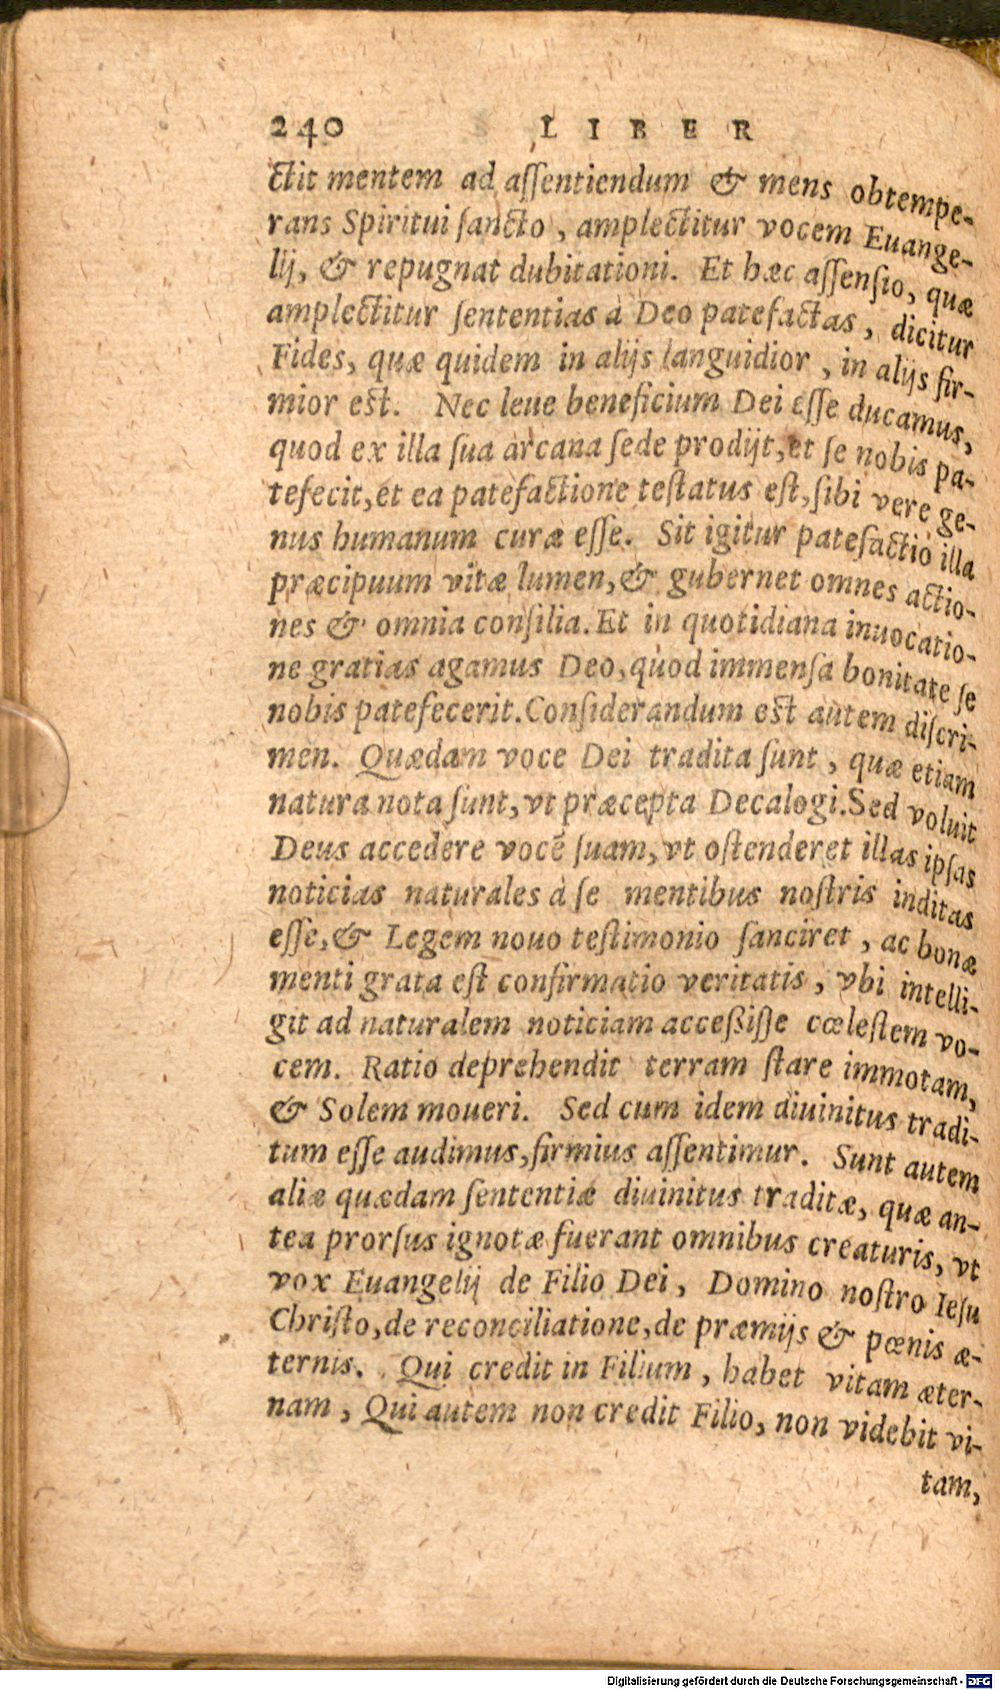 240 LIBER
ctit mentem ad aſſentiendum & mens obtempe-
rans Spiritui ſancto, amplectitur vocem Euange-
lij, & repugnat dubitationi. Et hæc aſſenſio, quæ
amplectitur ſententias à Deo patefactas, dicitur
Fides, quæ quidem in alijs languidior, in alijs fir-
mior est. Nec leue beneficium Dei eſſe ducamus,
quod ex illa ſua arcana ſede prodijt, et ſe nobis pa-
tefecit, et ea patefactione teſtatus eſt, ſibi vere ge-
nus humanum curæ eſſe. Sit igitur patefactio illa
præcipuum vitæ lumen, & gubernet omnes actio-
nes & omnia conſilia. Et in quotidiana inuocatio-
ne gratias agamus Deo, quod immenſa bonitate ſe
nobis patefecerit. Conſiderandum est autem diſcri-
men. Quædam voce Dei tradita ſunt, quæ etiam
natura nota ſunt, vt præcepta Decalogi. Sed voluit
Deus accedere vocẽ ſuam, vt oſtenderet illas ipſas
noticias naturales à ſe mentibus noſtris inditas
eſſe, & Legem nouo teſtimonio ſanciret, ac bonæ
menti grata eſt confirmatio veritatis, vbi intelli-
git ad naturalem noticiam acceßiſſe cœleſtem vo-
cem. Ratio deprehendit terram ſtare immotam,
& Solem moueri. Sed cum idem diuinitus tradi-
tum eſſe audimus, firmius aſſentimur. Sunt autem
aliæ quædam ſententiæ diuinitus traditæ, quæ an-
tea prorſus ignotæ fuerant omnibus creaturis, vt
vox Euangelij de Filio Dei, Domino noſtro Ieſu
Chriſto, de reconciliatione, de præmijs & pœnis æ-
ternis. Qui credit in Filium, habet vitam æter-
nam, Qui autem non credit Filio, non videbit vi-
tam,
Digitalisierung gefördert durch die Deutsche Forschungsgemeinschaft - DFG